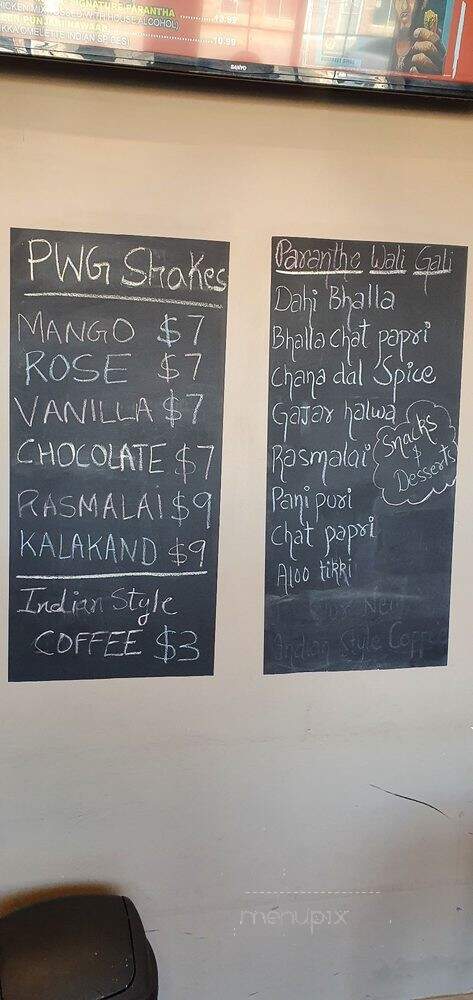 SIGNATURE PARANTHA
HOUSE ALCOHOL) 10.99
OMELETTE INDIAN SPICES) 10.99
SANYO
PWG Shakes
MANGO $7
ROSE $7
VANILLA $7
CHOCOLATE $7
RASMALAI $9
KALAKAND $9
Indian Style
COFFEE $3
Paranthe Wali Gali
Dahi Bhalla
Bhalla chat papri
Chana dal Spice
Gajar halwa
Rasmalai
Snacks
&
Desserts
Pani puri
Chat papri
Aloo tikki
Indian Style Coffee
menupix